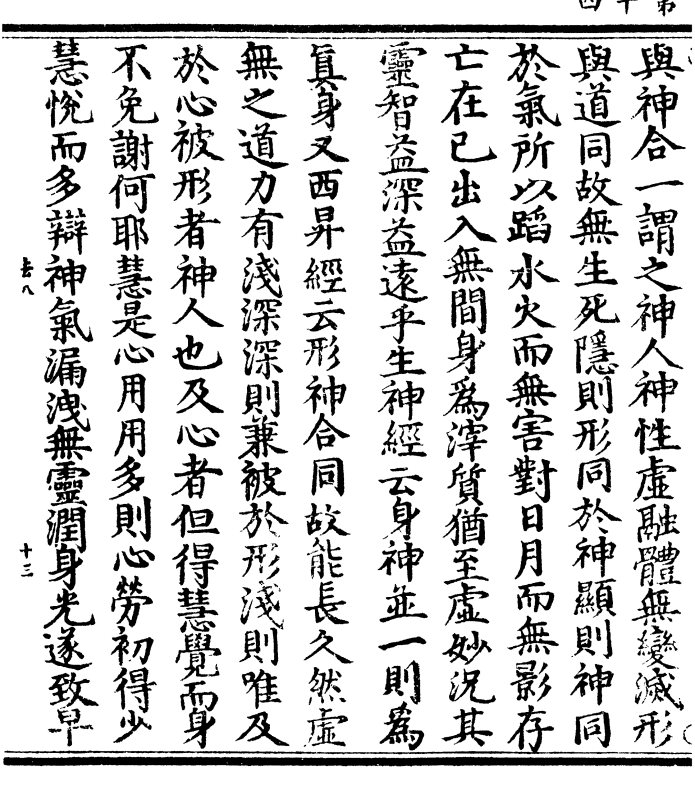 與神合一謂之神人神性虛融體無變滅形
與道同故無生死隱則形同於神顯則神同
於氣所以蹈水火而無害對日月而無影存
亡在已出入無間身為滓質猶至虛妙況其
靈智益深益遠乎生神經云身神並一則為
眞身又西昇經云形神合同故能長久然虛
無之道力有淺深深則兼被於形淺則唯及
於心被形者神人也及心者但得慧覺而身
不免謝何耶慧是心用用多則心勞初得少
慧悅而多辯神氣漏洩無靈潤身光遂致早
去八
十三